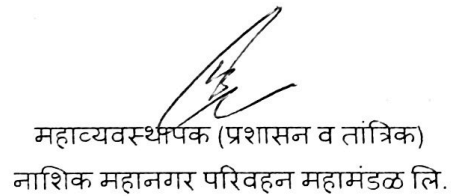 महाव्यवस्थापक (प्रशासन व तांत्रिक)
नाशिक महानगर परिवहन महामंडळ लि.